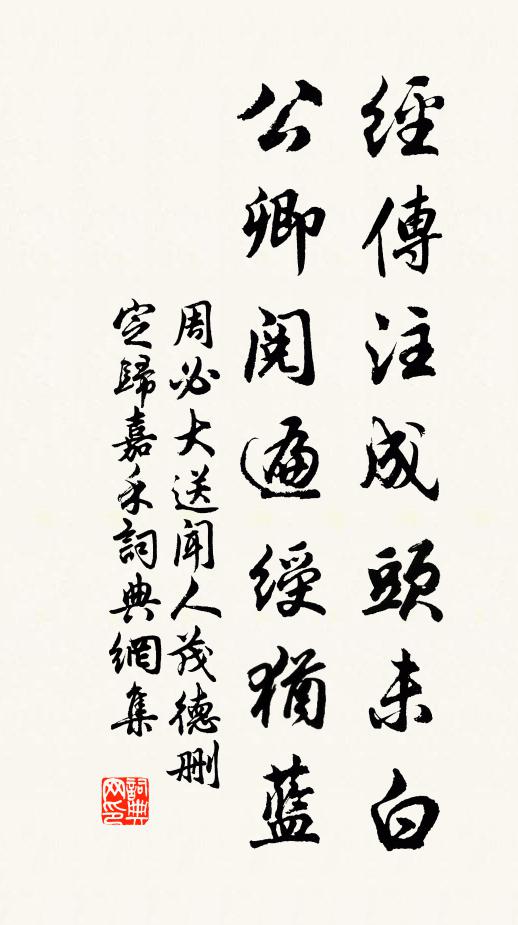 經傳注成頭未白
公卿閱遍綬猶藍
周必大送聞人茂德刪
定歸嘉禾詞典網集
詞典
网印